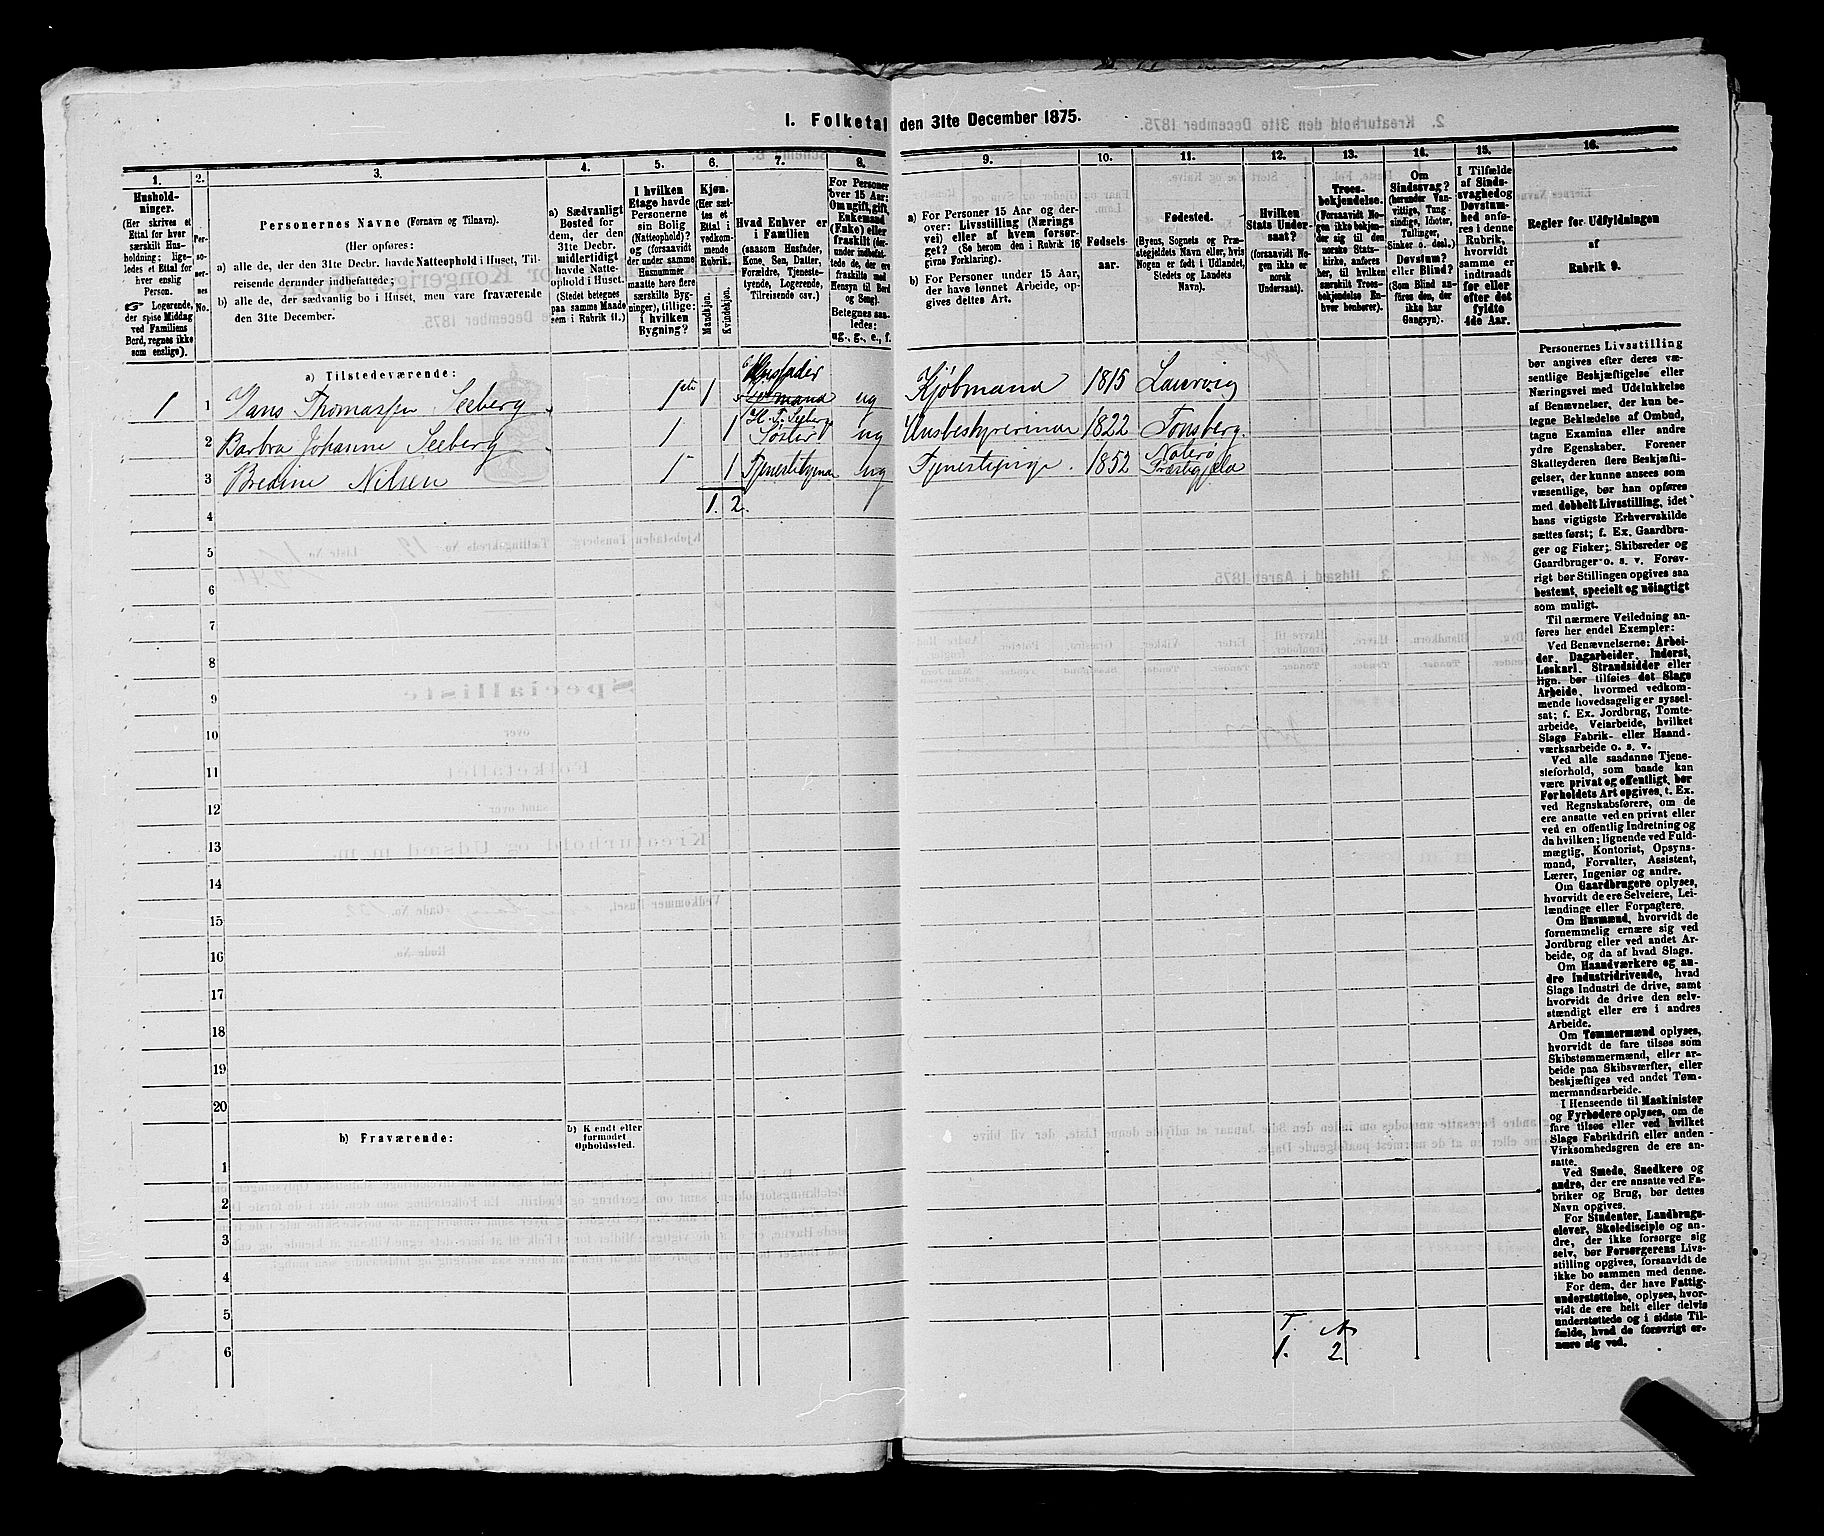 I. Folketal den 31te December 1875.
1.
2.
3.
4.
5.
6.
7.
8.
9.
10.
11.
12.
13.
14.
15.
16.
Hushold-
ninger.
(Her skrives et
Ettal for hver
særskilt Hus-
holdning; lige-
ledes et Ettal for
hver enslig
Person.
Logerende,
der spise Middag
ved Familiens
Bord, regnes ikke
som enslige).
Per-
so-
ner-
nes
No.
Personernes Navne (Fornavn og Tilnavn).
(Her opføres:
a) alle de, der den 31te Decbr. havde Natteophold i Huset, Til-
reisende derunder indbefattede;
b) alle de, der sædvanlig bo i Huset, men vare fraværende
den 31te December.
a) Sædvanligt
Bosted for
dem, der den
31te Decbr.
midlertidigt
havde Natte-
ophold i Huset.
(Stedet betegnes
paa samme Maade
som i Rubrik 11.)
I hvilken
Etage havde
Personerne
sin Bolig
(Natteophold)?
og (forsaavidt
der under samme
Husnummer
maatte høre flere
særskilte Byg-
ninger), tillige:
i hvilken
Bygning?
Kjøn.
(Her sæt-
tes et
Ettal i
vedkom-
mende
Rubrik.
Mandkjøn.
Kvindekjøn.
Hvad Enhver er
i Familien
(saasom Husfader,
Kone, Søn, Datter,
Forældre, Tjeneste-
tyende, Logerende,
Tilreisende osv.)
For Personer
over 15 Aar:
Om ugift, gift,
Enkemand
(Enke) eller
fraskilt (der-
under indbefat-
tede de, der ere
fraskilte med
Hensyn til Bord
og Seng).
Betegnes saa-
ledes:
ug., g., e., f.
a) For Personer 15 Aar og der-
over: Livsstilling (Nærings-
vei) eller af hvem forsør-
get? (Se herom den i Rubrik 16
givne Forklaring).
b) For Personer under 15 Aar,
der have lønnet Arbeide, op-
gives dettes Art.
Fødsels-
aar.
Fødested.
(Byens, Sognets og Præ-
stegjeldets Navn eller, hvis
Nogen er født i Udlandet,
Stedets og Landets
Navn).
Hvilken
Stats Under-
saat?
(forsaavidt No-
gen ikke er
norsk
Undersaat).
Troes-
bekjendelse.
(Forsaavidt No-
gen ikke bekjen-
der sig til den
norske Stats-
kirke, anføres
her, til hvilken
særskilt Troes-
bekjendelse En-
hver henhører).
Om
Sindssvag?
(herunder Van-
vittige, Tung-
sindige, Idioter,
Tullinger,
Sinker o. desl.)
Døvstum?
eller Blind?
(Som Blind an-
føres den, der
ikke har
Gangsyn).
I Tilfælde
af Sinds-
svaghed og
Døvstum-
hed anfø-
res i denne
Rubrik,
hvorvidt
samme er
indtraadt
før eller
efter det
fyldte
4de Aar.
Regler for Udfyldningen
af
Rubrik 9.
a) Tilstedeværende:
1 1 Hans Thomassen Seeberg 1ste 1 Husfader ug Kjøbmand 1815 Laurvig
2 Barbra Johanne Seeberg 1 1 H. T. Seeberg Søster ug Husbestyrerinde 1822 Tønsberg
3 Bredine Nilsen 1 1 Tjenestetyende ug Tjenestepige 1852 Nøterø Præstegjeld
4 1. 2.
5
6
7
8
9
10
11
12
13
14
15
16
17
18
19
20
b) Fraværende:
b) Kendt eller
formodet
Opholdssted.
1
2
3
4
5
6
T.
1. 2
Personernes Livsstilling
bør angives efter deres væ-
sentlige Beskjæftigelse eller
Næringsvei med Udelukkelse
af Benævnelser, der kun be-
tegne Beklædelse af Ombud,
tagne Examina eller andre
ydre Egenskaber. Forener
Skatteyderen flere Beskjæfti-
gelser, der kunne ansees som
væsentlige, bør han opføres
med dobbelt Livsstilling, idet
hans vigtigste Erhvervskilde
sættes først; f. Ex. Gaardbru-
ger og Fisker; Skibsreder og
Gaardbruger o. s. v. Forøv-
rigt bør Stillingen opgives saa
bestemt, specielt og nøiagtigt
som muligt.
Til nærmere Veiledning an-
føres her endel Exempler:
Ved Benævnelserne: Arbei-
der, Dagarbeider, Inderst,
Løskarl, Strandsidder eller
lign. bør tilføies det Slags
Arbeide, hvormed vedkom-
mende hovedsagelig er syssel-
sat; f. Ex. Jordbrug, Tomte-
arbeide, Veiarbeide, hvilket
Slags Fabrik- eller Haand-
værksarbeide o. s. v.
Ved alle saadanne Tjene-
steforhold, som baade kan
være privat og offentligt, bør
Forholdets Art opgives, t. Ex.
ved Regnskabsførere, om de
ere ansatte ved en privat eller
ved en offentlig Indretning og
da hvilken; lignende ved Fuld-
mægtig, Kontorist, Opsyns-
mand, Forvalter, Assistent,
Lærer, Ingeniør og andre.
Om Gaardbrugere oplyses,
hvorvidt de ere Selveiere, Lei-
lændinge eller Forpagtere.
Om Husmænd, hvorvidt de
fornemmelig ernære sig ved
Jordbrug eller ved andet Ar-
beide, og da af hvad Slags.
Om Haandværkere og an-
dre Industridrivende, hvad
Slags Industri de drive, samt
hvorvidt de drive den selv-
stændigt eller ere i andres
Arbeide.
Om Tømmermænd oplyses,
hvorvidt de fare tilsøs som
Skibstømmermænd, eller ar-
beide paa Skibsværfter, eller
beskjæftiges ved andet Tøm-
mermandsarbeide.
I Henseende til Maskinister
og Fyrbødere oplyses, om de
fare tilsøs eller ved hvilket
Slags Fabrikdrift eller anden
Virksomhedsgren de ere an-
satte.
Ved Smede, Snedkere og
andre, der ere ansatte ved Fa-
briker og Brug, bør dettes
Navn opgives.
For Studenter, Landbrugs-
elever, Skoledisciple og an-
dre, der ikke forsørge sig
selv, bør Forsørgerens Livs-
stilling opgives, forsaavidt de
ikke bo sammen med denne.
For dem, der have Fattig-
understøttelse, oplyses, hvor-
vidt de ere helt eller delvis
understøttede og i sidste Til-
fælde, hvad de forøvrigt er-
nære sig ved.